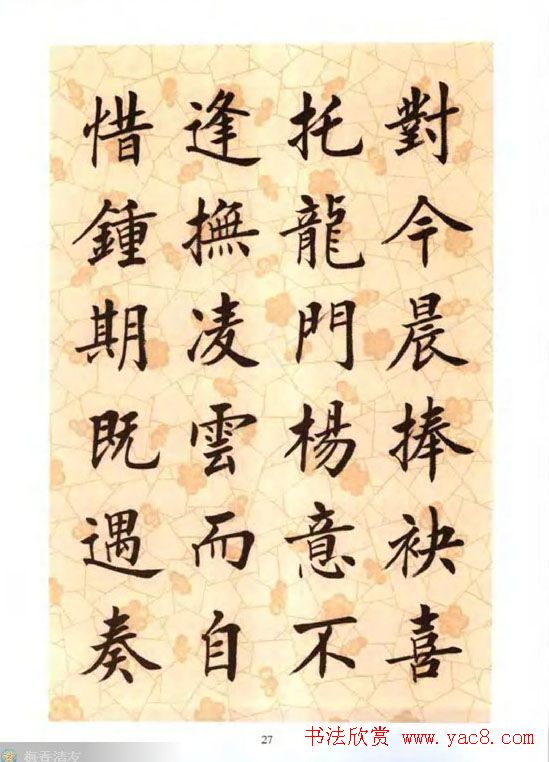 對今晨捧袂喜
托龍門楊意不
逢撫凌雲而自
惜鍾期既遇奏
27
书法欣赏 www.yac8.com
梅香清友